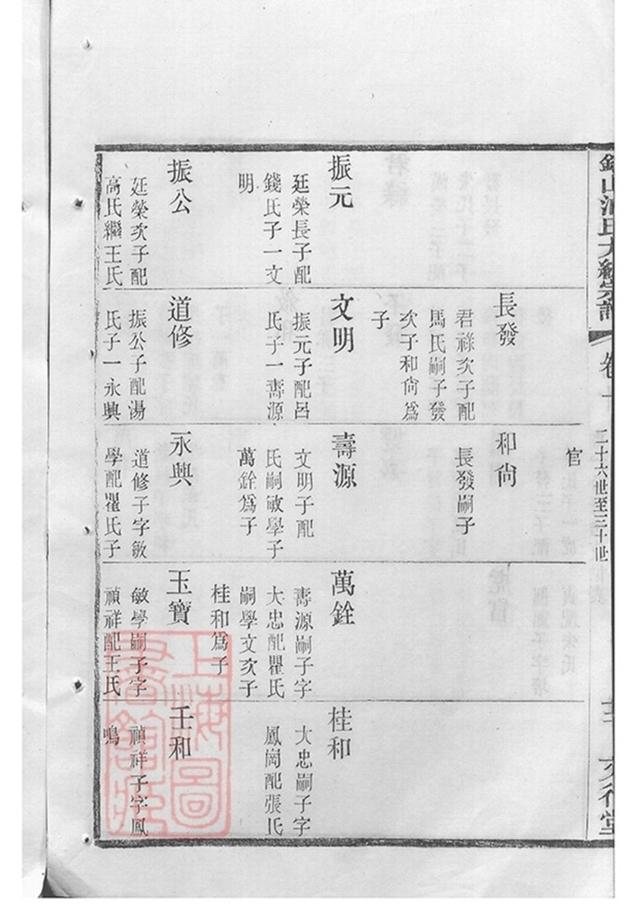 二十六世至三十世
文行堂
振元
廷榮長子配
錢氏子一文
明
振公
廷榮次子配
高氏繼王氏
長發
君祿次子配
馬氏嗣子發
次子和尙爲
子
文明
振元子配呂
氏子一壽源
道修
振公子配湯
氏子一永興
官
和尙
長發嗣子
壽源
文明子配
氏嗣敏學子
萬銓爲子
永興
道修子字敏
學配瞿氏子
萬銓
壽源嗣子字
大忠配瞿氏
嗣學文次子
桂和爲子
玉寶
敏學嗣子字
禎祥配王氏
桂和
大忠嗣子字
鳳岡配張氏
壬和
禎祥子字鳳
鳴
上海圖
書館藏